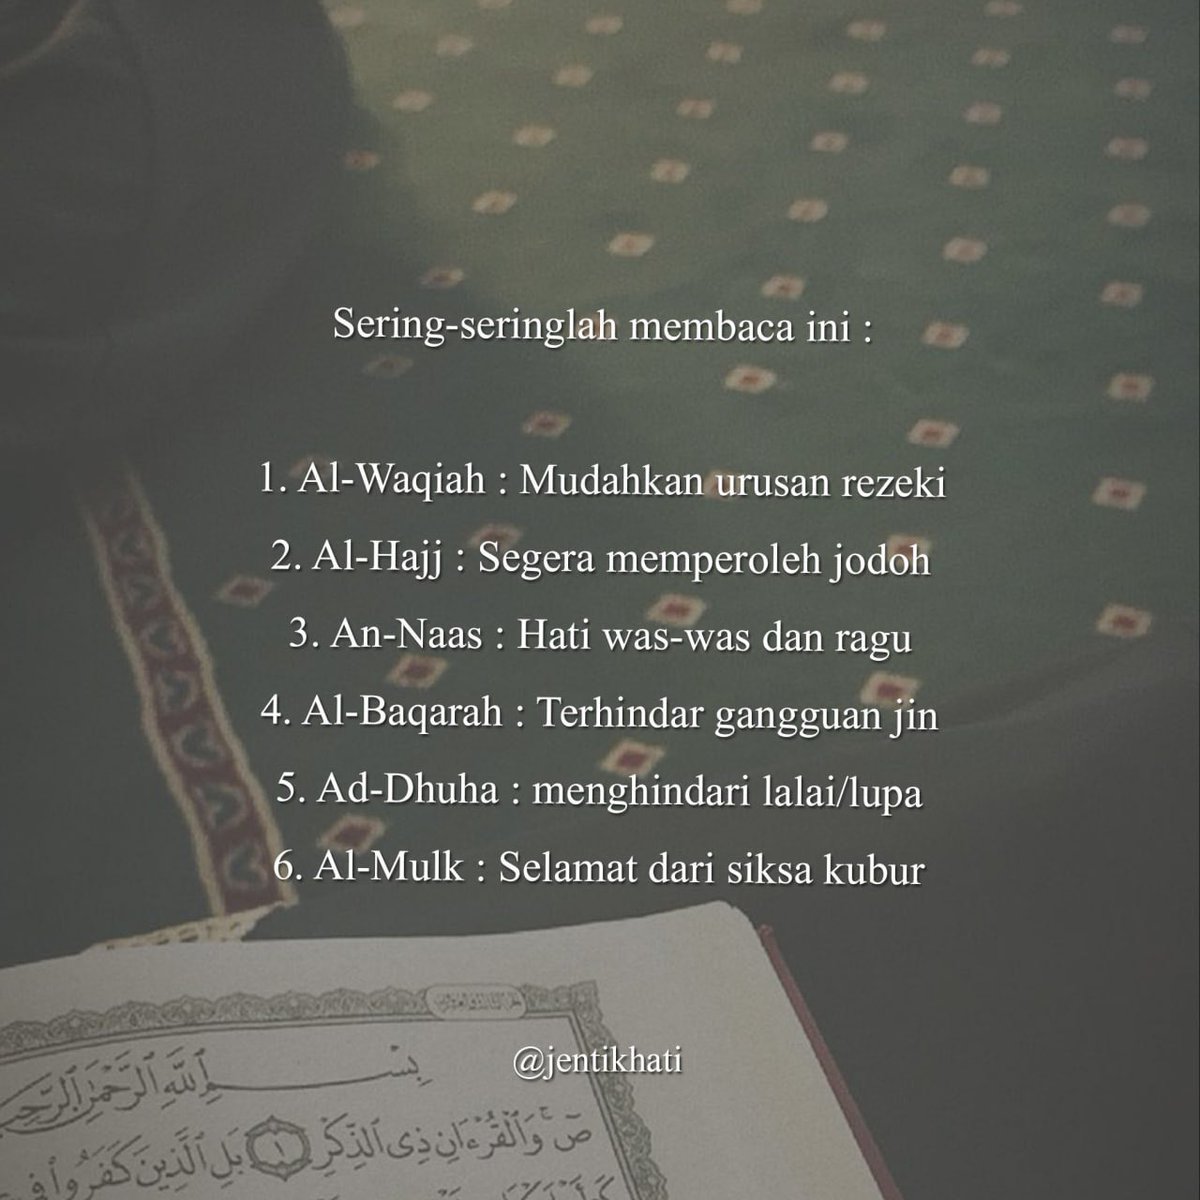 Sering-seringlah membaca ini :
1. Al-Waqiah : Mudahkan urusan rezeki
2. Al-Hajj : Segera memperoleh jodoh
3. An-Naas : Hati was-was dan ragu
4. Al-Baqarah : Terhindar gangguan jin
5. Ad-Dhuha : menghindari lalai/lupa
6. Al-Mulk : Selamat dari siksa kubur
@jentikhati
بِسْمِ ٱللَّهِ ٱلرَّحْمَٰنِ ٱلرَّحِيمِ
صٓ وَٱلْقُرْءَانِ ذِى ٱلذِّكْرِ ١ بَلِ ٱلَّذِينَ كَفَرُوا۟ فِى